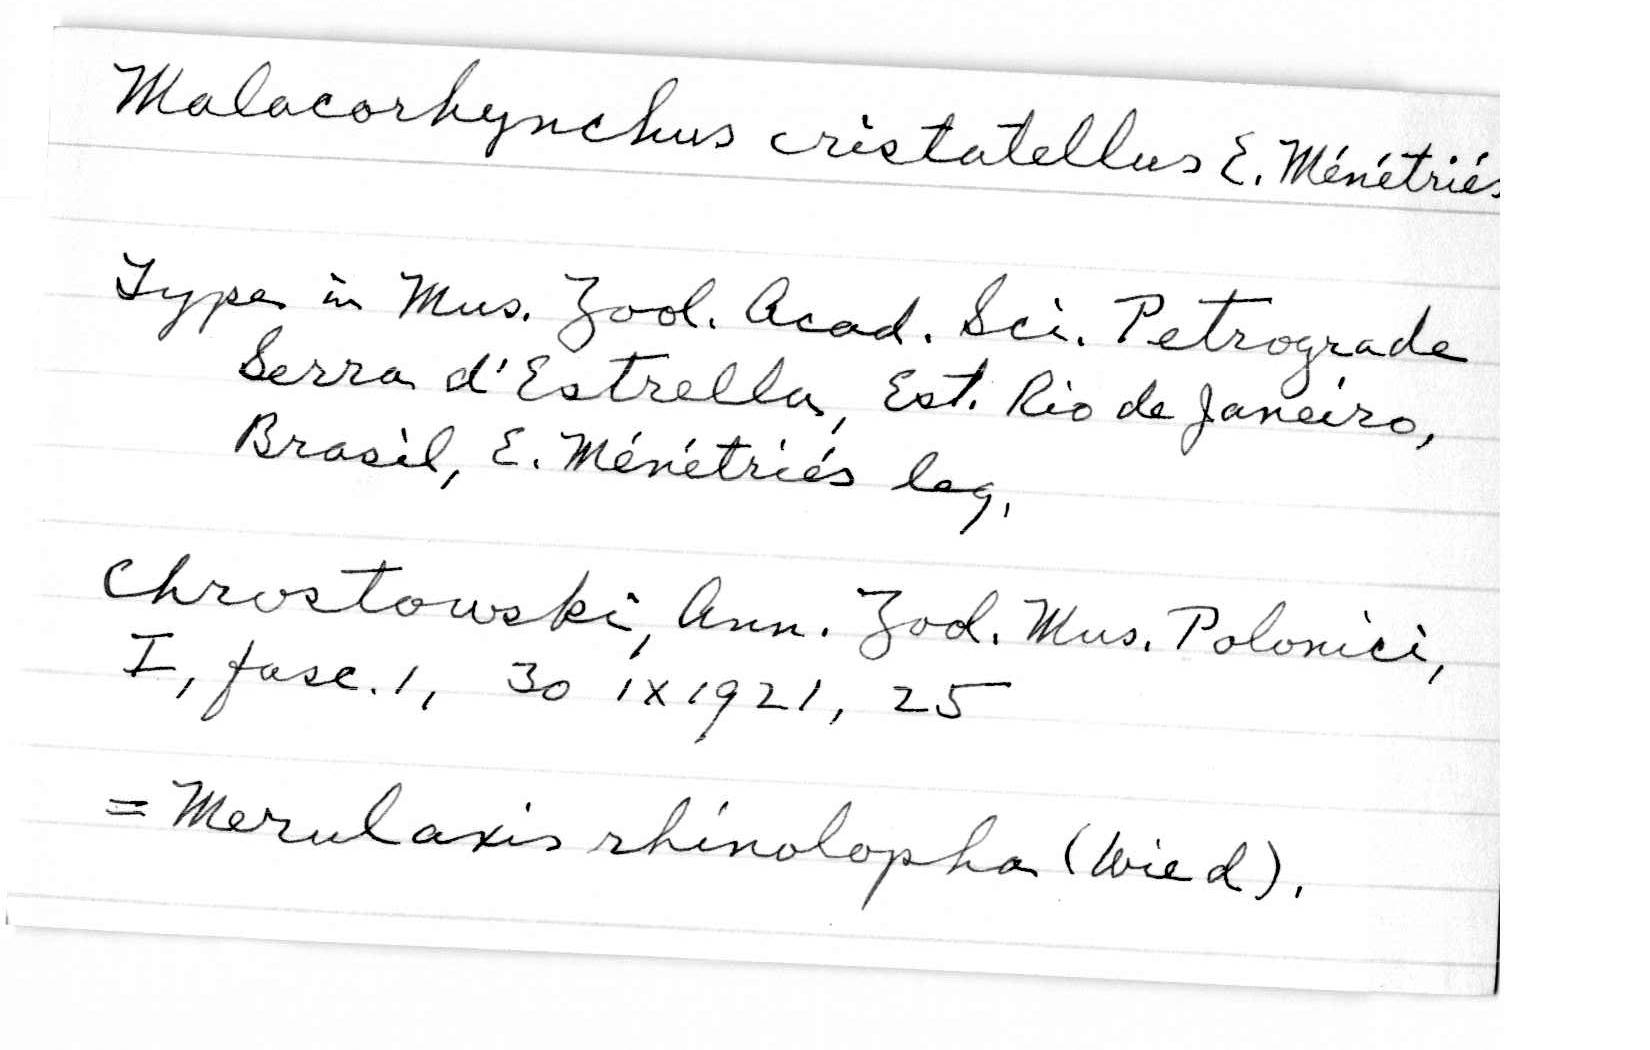 Malacorhynchus cristatellus E. Ménétriés
Type in Mus. Zool. Acad. Sci. Petrograde
Serra d'Estrella, Est. Rio de Janeiro,
Brasil, E. Ménétriés leg.
Chrostowski, Ann. Zool. Mus. Polonici,
I, fasc. 1, 30 IX 1921, 25
= Merulaxis rhinolopha (Wied).